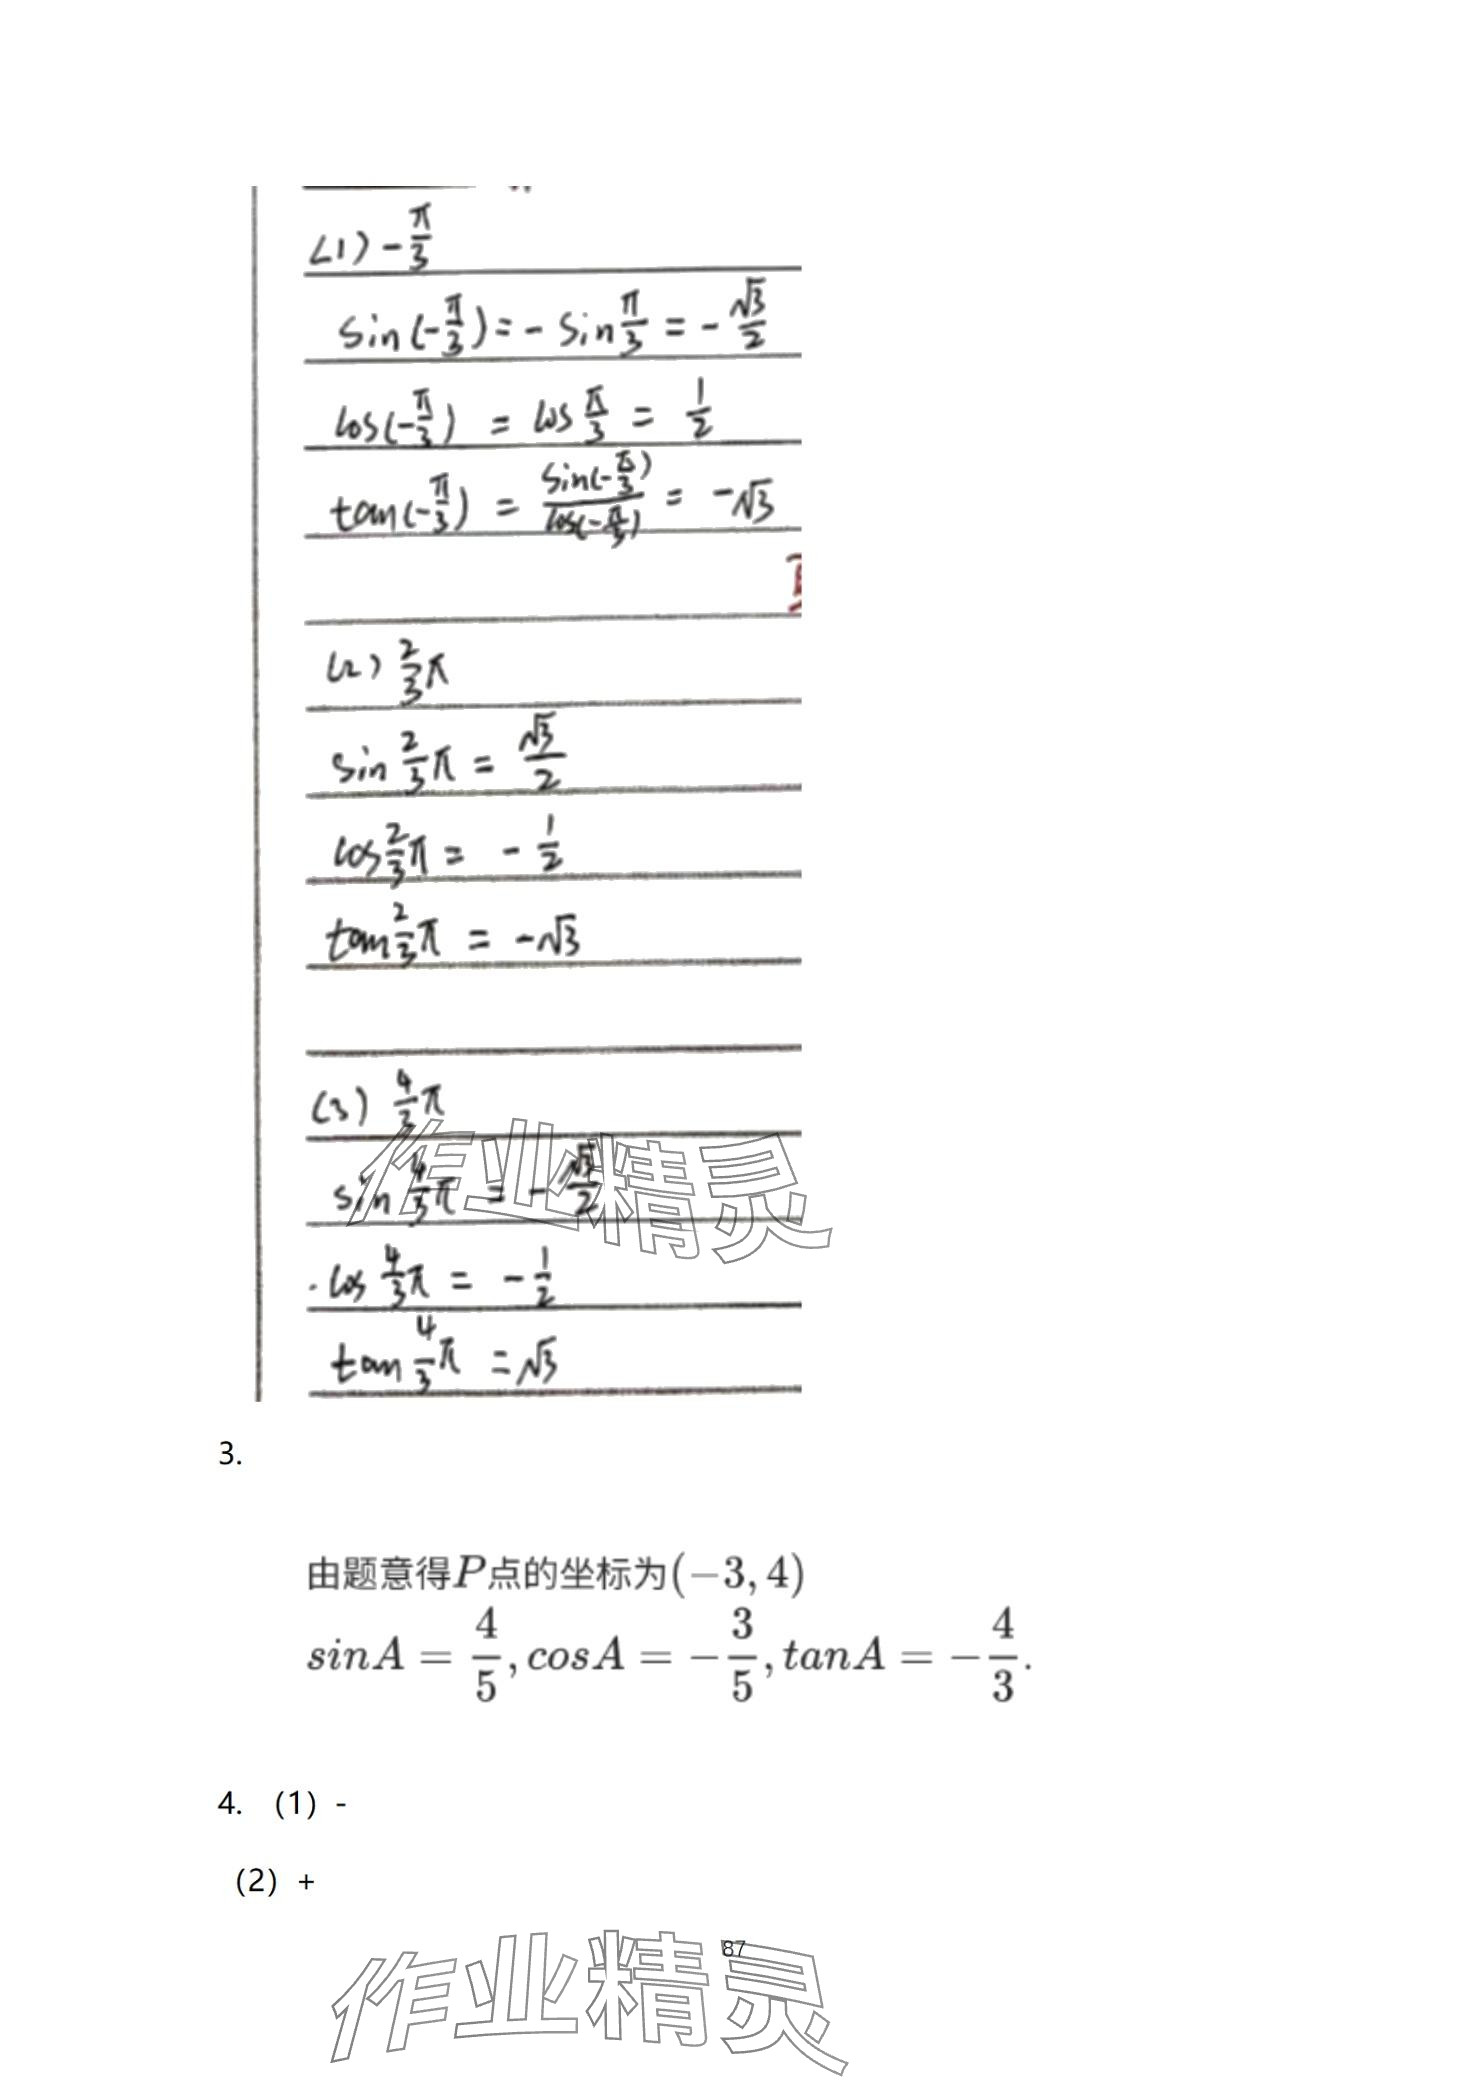 (1) -π/3
sin(-π/3) = -sin π/3 = -√3/2
cos(-π/3) = cos π/3 = 1/2
tan(-π/3) = sin(-π/3)/cos(-π/3) = -√3
(2) 2/3 π
sin 2/3 π = √3/2
cos 2/3 π = -1/2
tan 2/3 π = -√3
(3) 4/3 π
作业精灵
sin 4/3 π = -√3/2
cos 4/3 π = -1/2
tan 4/3 π = √3
3.
由题意得P点的坐标为(-3,4)
sinA = 4/5, cosA = -3/5, tanA = -4/3.
4. （1）-
（2）+
87
作业精灵